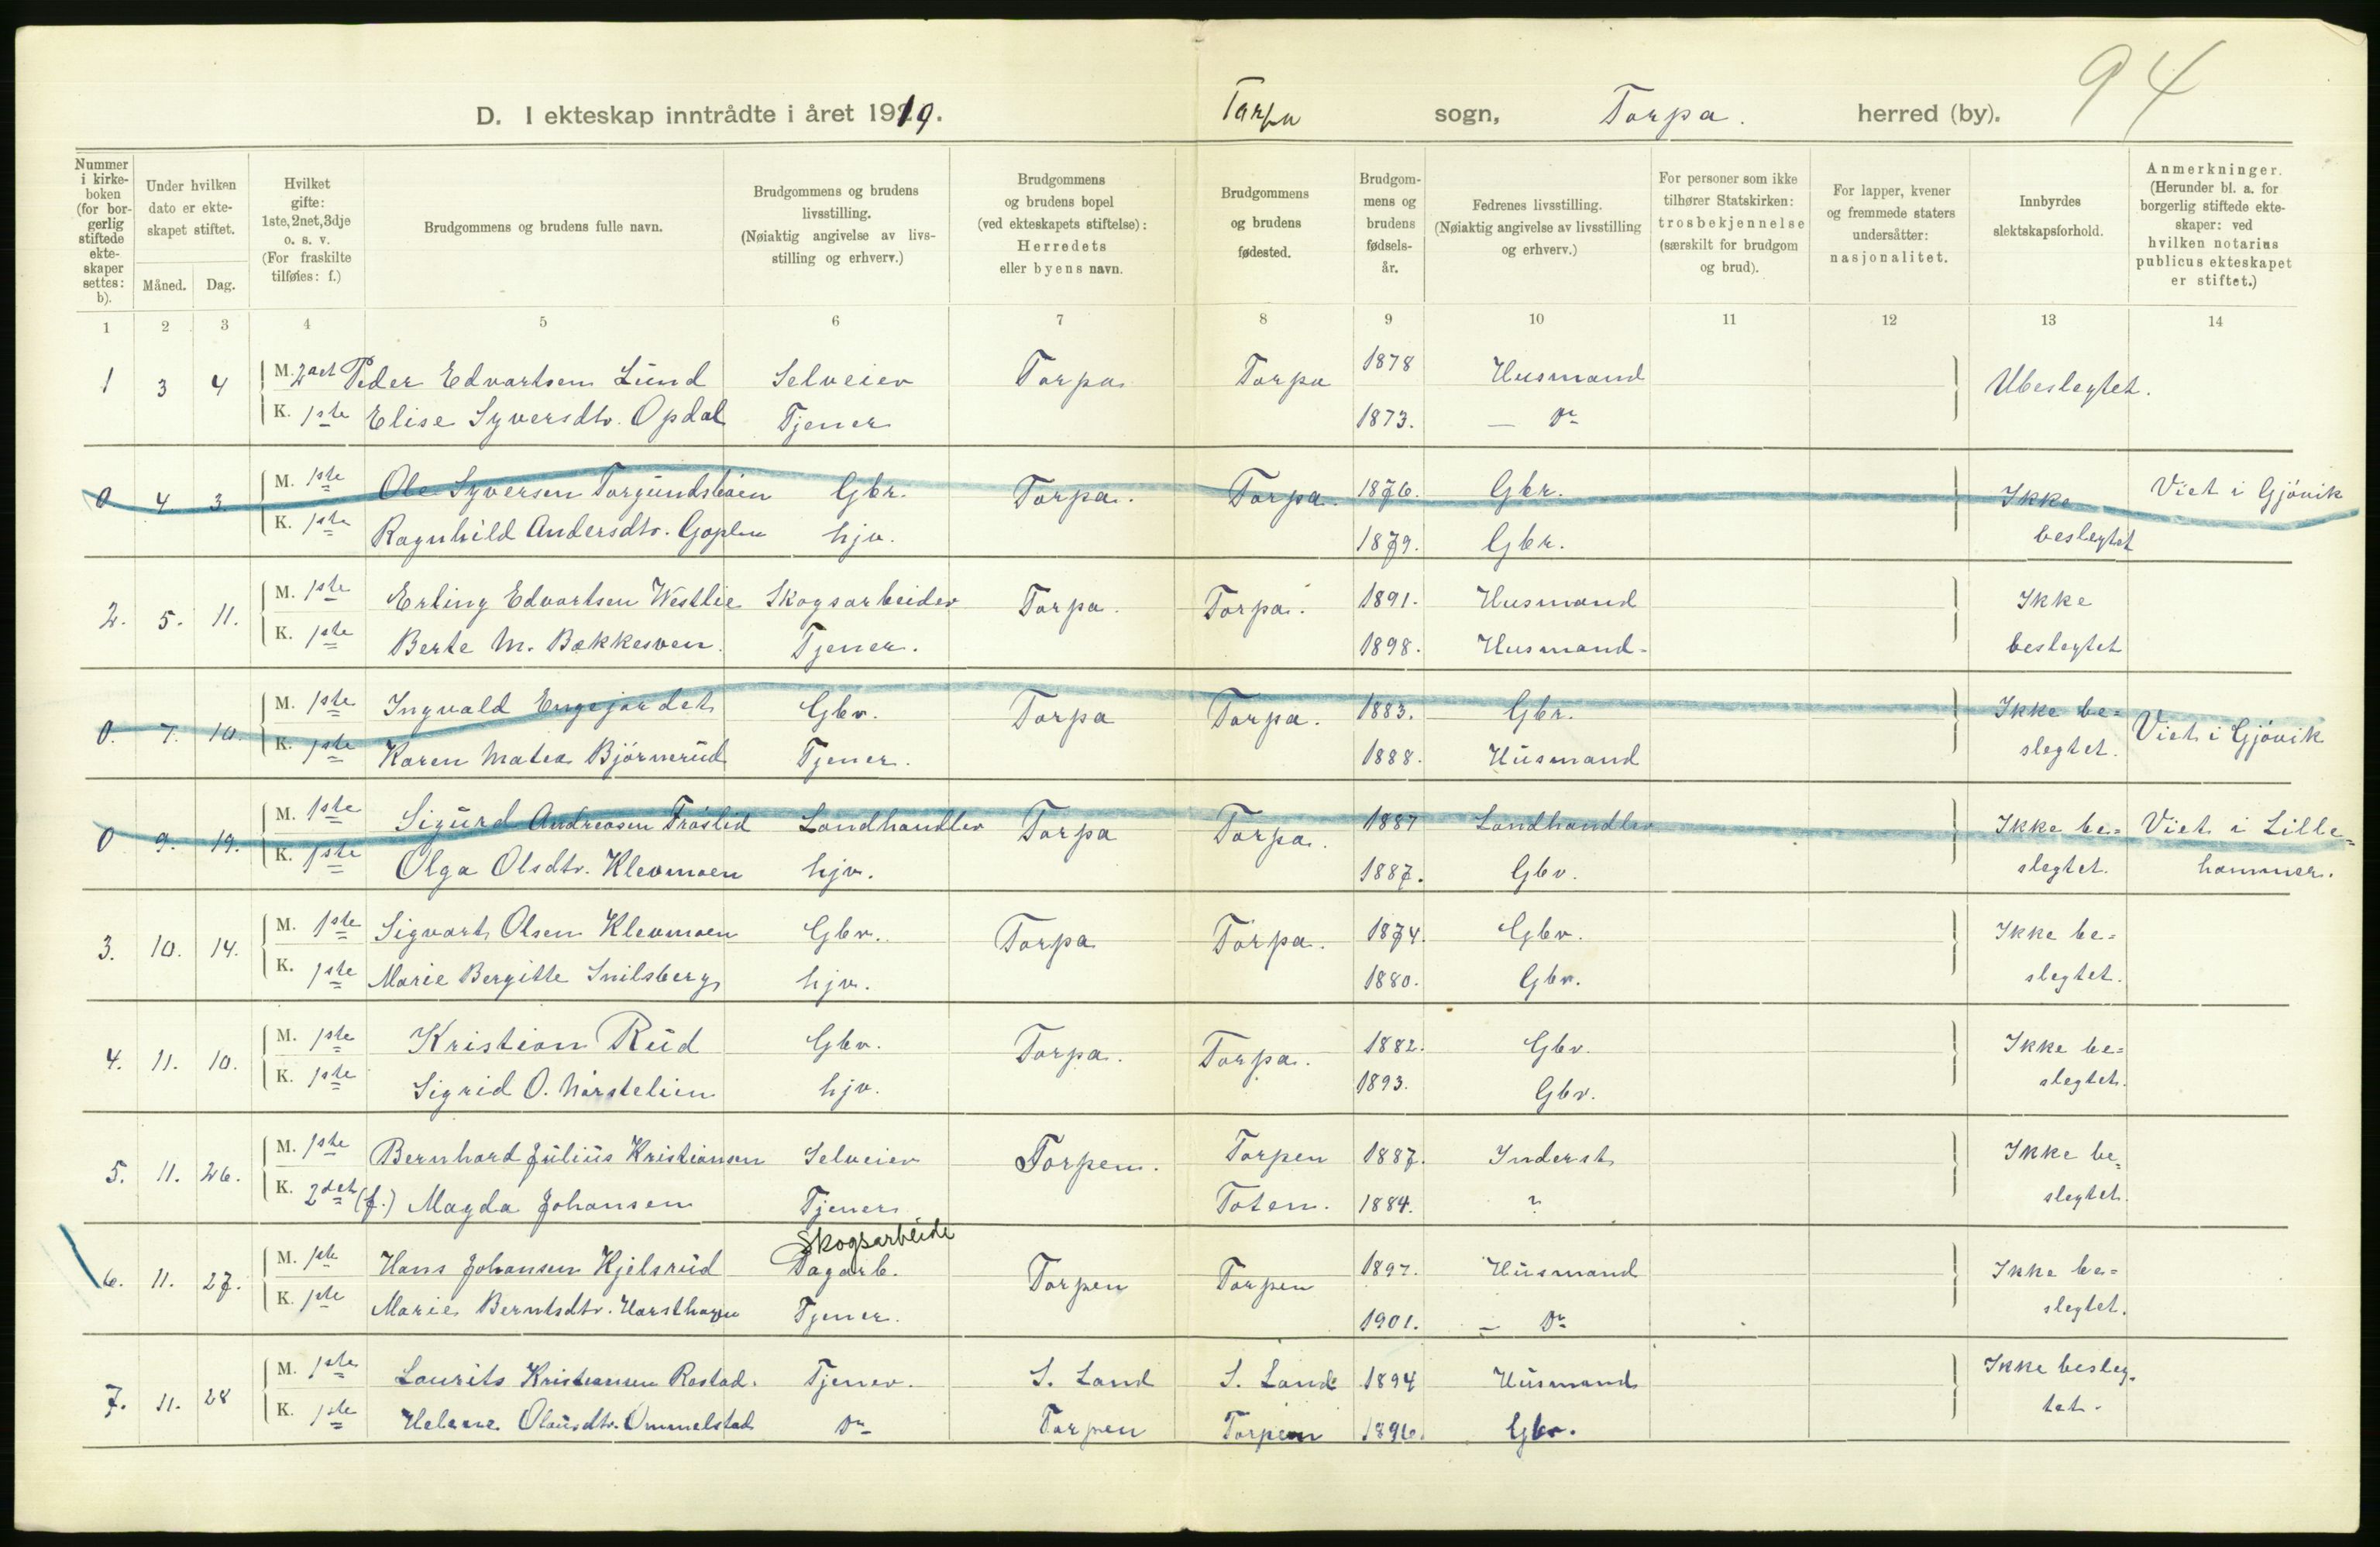 94
D. I ekteskap inntrådte i året 1919. Torpa sogn, Torpa. herred (by).
Nummer i kirke-boken (for bor-gerlig stiftede ekte-skaper settes: b).
Under hvilken dato er ekte-skapet stiftet.
Måned. Dag.
Hvilket gifte: 1ste, 2net, 3dje o. s. v. (For fraskilte tilføies: f.)
Brudgommens og brudens fulle navn.
Brudgommens og brudens livsstilling. (Nøiaktig angivelse av livs-stilling og erhverv.)
Brudgommens og brudens bopel (ved ekteskapets stiftelse): Herredets eller byens navn.
Brudgommens og brudens fødested.
Brudgom-mens og brudens fødsels-år.
Fedrenes livsstilling. (Nøiaktig angivelse av livsstilling og erhverv.)
For personer som ikke tilhører Statskirken: trosbekjennelse (særskilt for brudgom og brud).
For lapper, kvener og fremmede staters undersåtter: nasjonalitet.
Innbyrdes slektskapsforhold.
Anmerkninger. (Herunder bl. a. for borgerlig stiftede ekte-skaper: ved hvilken notarius publicus ekteskapet er stiftet.)
1 2 3 4 5 6 7 8 9 10 11 12 13 14
1 3 4 M. 2net Peder Edvartsen Lund Selveier Torpa Torpa 1878 Husmand Ubeslegtet.
K. 1ste Elise Syversdtr. Opdal Tjener 1873. — Do
0 4 3 M. 1ste Ole Syversen Torgundsleien Gbr. Torpa. Torpa. 1876. Gbr. Ikke Viet i Gjövik
K. 1ste Ragnhild Andersdtr. Goplen hjv. 1879. Gbr. beslegtet
2. 5. 11. M. 1ste Erling Edvartsen Westlie Skogsarbeider Torpa. Torpa. 1891. Husmand Ikke
K. 1ste Berte M. Bækkesven. Tjener. 1898. Husmand. beslegtet
0. 7. 10. M. 1ste Ingvald Engejordet Gbr. Torpa Torpa. 1883. Gbr. Ikke be= Viet i Gjövik
K. 1ste Karen Matea Björnerud Tjener. 1888. Husmand slegtet.
0 9. 19. M. 1ste Sigurd Andreasen Fröslid Landhandler Torpa Torpa. 1887 Landhandler Ikke be= Viet i Lille=
K. 1ste Olga Olsdtr. Klevmoen hjv. 1887. Gbr. slegtet. hammer.
3. 10. 14. M. 1ste Sigvart Olsen Klevmoen Gbr. Torpa Torpa. 1874. Gbr. Ikke be=
K. 1ste Marie Bergitte Snilsberg hjv. 1880. Gbr. slegtet.
4. 11. 10. M. 1ste Kristian Rud Gbr. Torpa. Torpa. 1882. Gbr. Ikke be=
K. 1ste Sigrid O. Nörstelien hjv. 1893. Gbr. slegtet.
5. 11. 26. M. 1ste Bernhard Julius Kristiansen Selveier Torpen. Torpen 1887. Inderst Ikke be=
K. 2det (f.) Magda Johansen Tjener Toten. 1884. ? slegtet.
Skogsarbeide
6. 11. 27. M. 1ste Hans Johansen Kjelsrud Dagarb. Torpen Torpen 1897. Husmand Ikke be=
K. 1ste Marie Berntsdtr. Tjener. 1901. — Do slegtet.
7. 11. 28 M. 1ste Laurits Kristiansen Rostad. Tjener. S. Land S. Land 1894 Husmand Ikke besleg=
K. 1ste Helene Olausdtr. Ommelstad Do Torpen Torpen 1896. Gbr. tet.